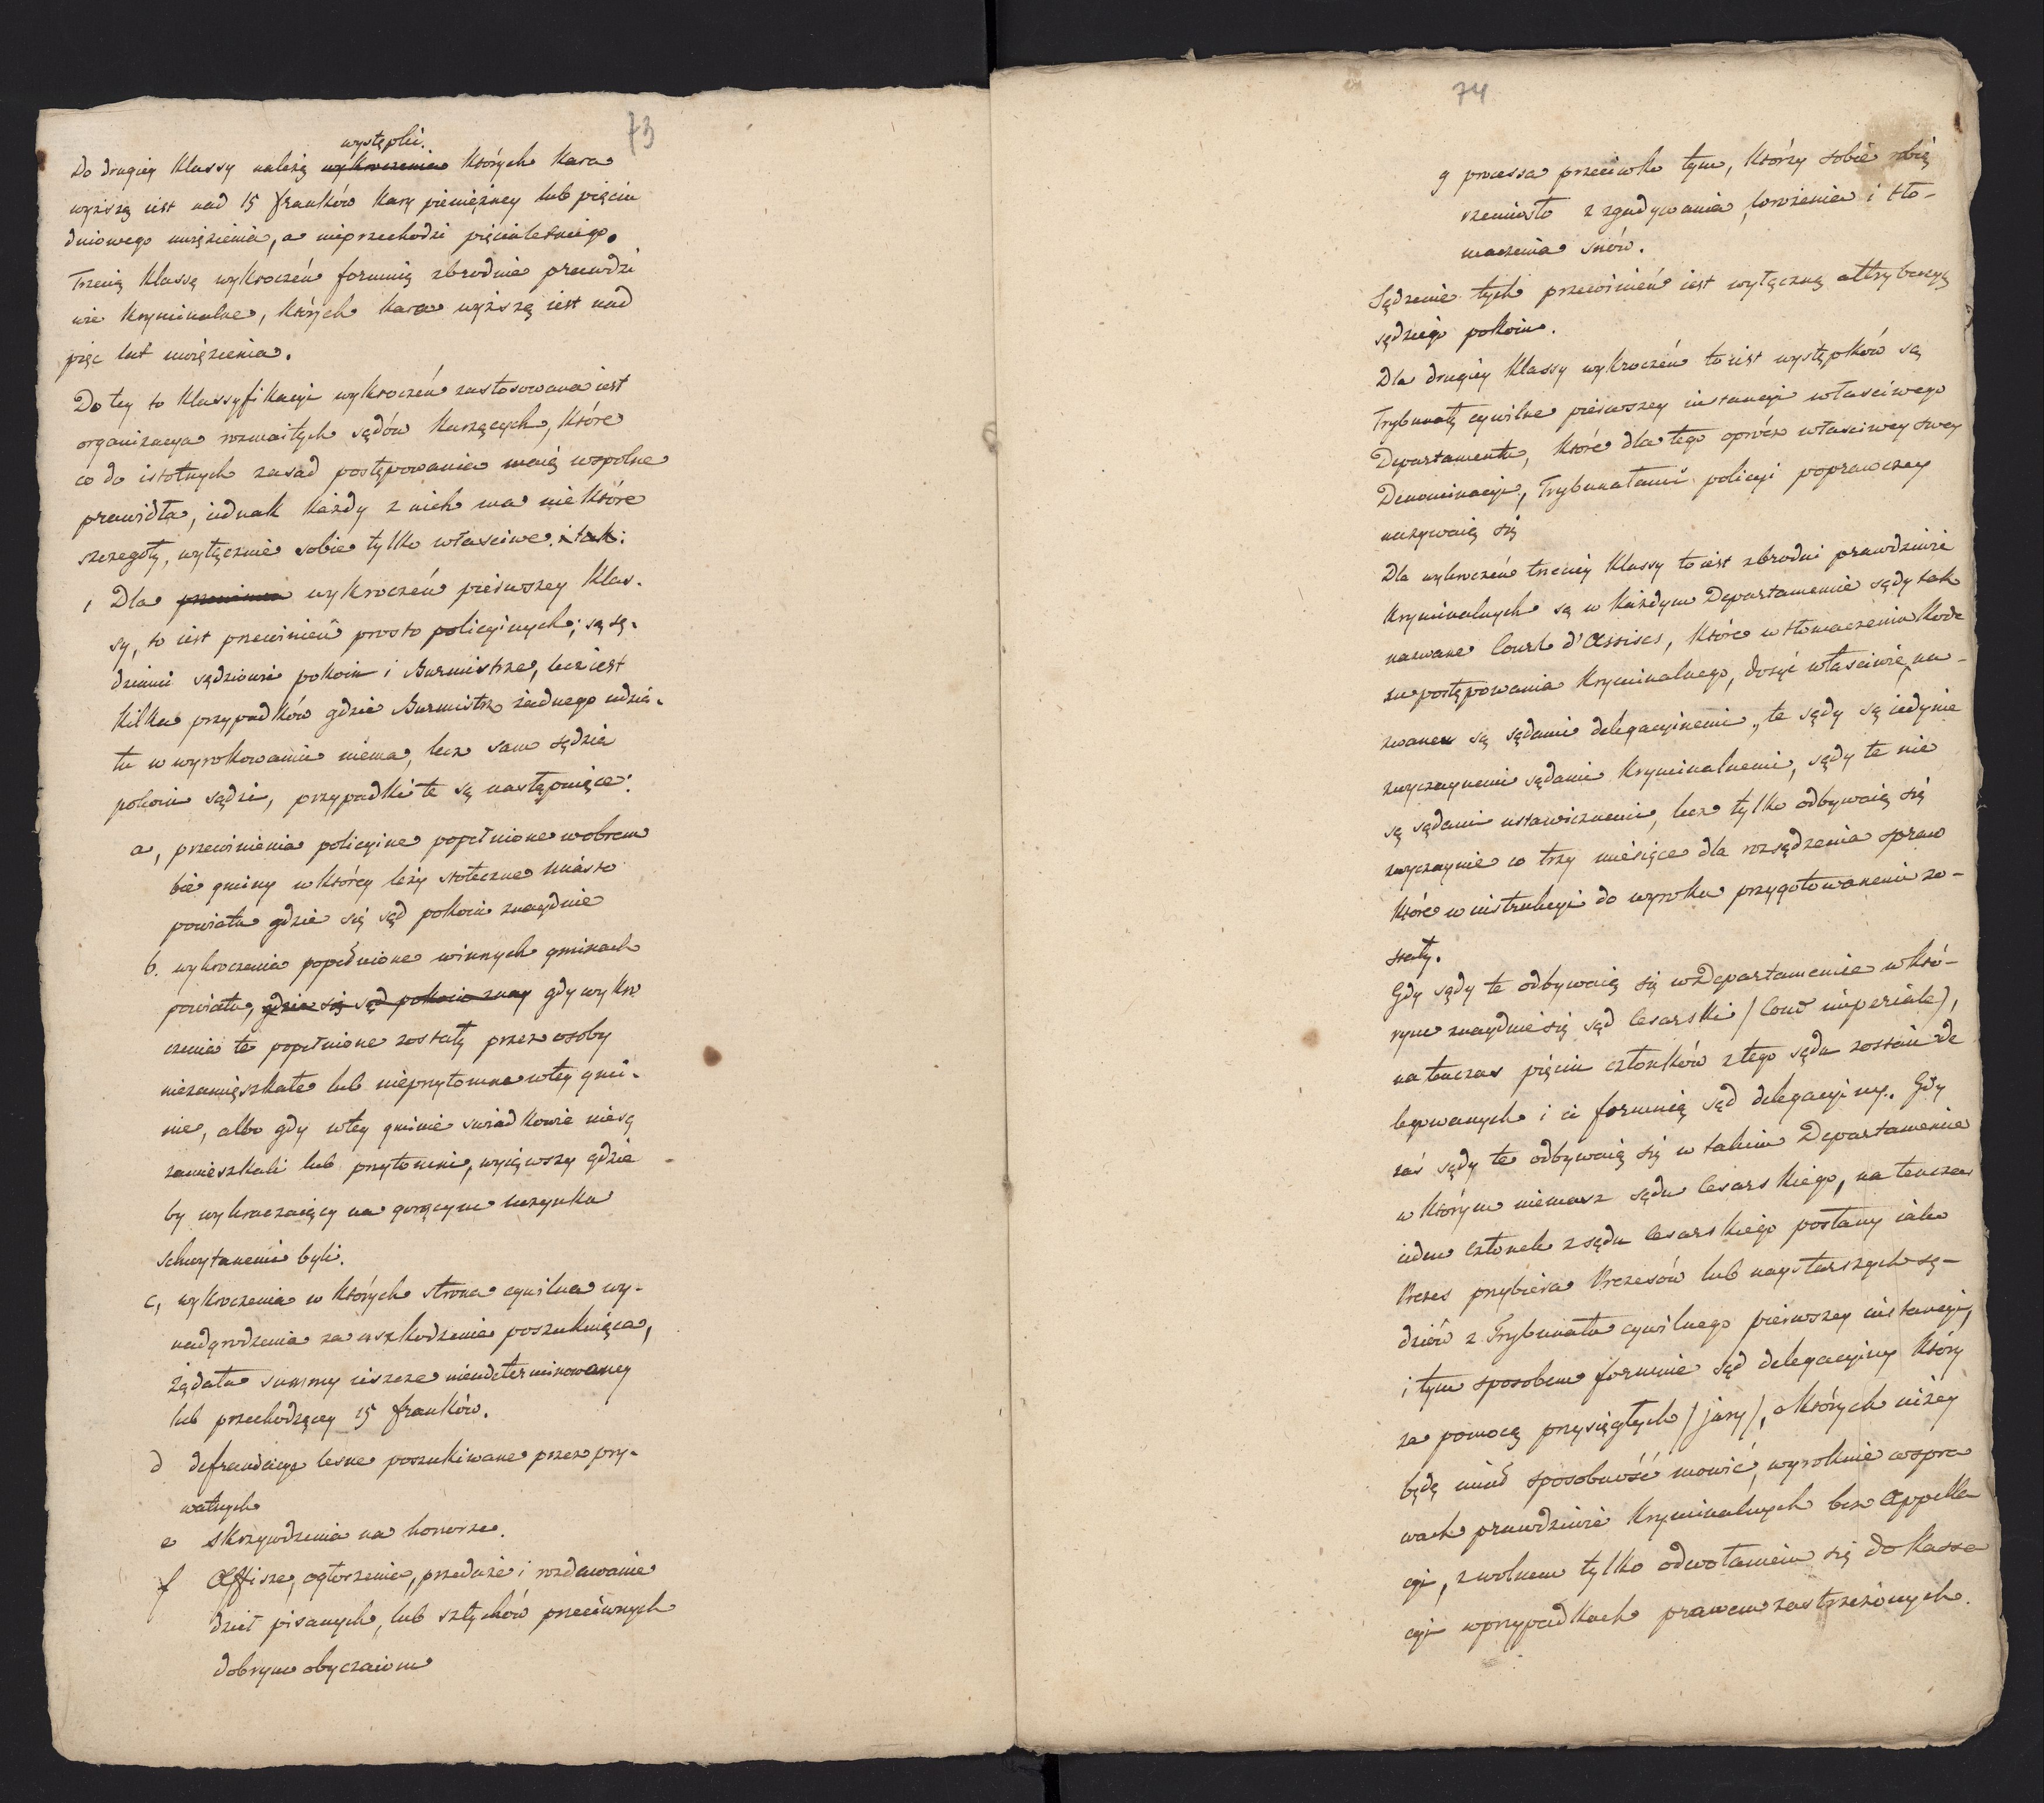 73
występki.
Do drugiey klassy należą wykroczenia których kara
wyższą iest nad 15 franków kary pieniężney lub pięciu
dniowego uwięzienia, a nieprzechodzi pięcioletniego.
Trzecią klassę wykroczeń formuią zbrodnie prawdzi
wie kryminalne, których kara wyższą iest nad
pięc lat uwięzienia.
Do tey to klassyfikacyi wykroczeń zastosowana iest
organizacya rozmaitych sądów karzących, które
co do istotnych zasad postępowania maią wspolne
prawidła, iednak każdy z nich ma niektóre
szczegoły, wyłącznie sobie tylko właściwe. i tak:
1 Dla wykroczeń pierwszey klas-
sy, to iest przewinień prosto policyinych; są sę-
dziami sędziowie pokoiu i Burmistrze, lecz iest
kilka przypadków gdzie Burmistrz żadnego udzia-
łu w wyrokowaniu niema, lecz sam sędzia
pokoiu sądzi, przypadki te są następuiące:
a, przewinienia policyine popełnione wobrem
bie gminy w którey leży stołeczne miasto
powiatu gdzie się sąd pokoiu znayduie
b. wykroczenia popełnione winnych gminach
powiatu, gdzie się sąd pokoiu znay gdy wykro
czenia te popełnione zostały przez osoby
niezamięszkałe lub nieprzytomne wtey gmi-
nie, albo gdy wtey gminie swiadkowie niesą
zamieszkali lub przytomni, wyiąwszy gdzie
by wykraczaiący na gorącym uczynku
schwytanemi byli.
c, wykroczenia w których strona cywilna wy-
nadgrodzenia za uszkodzenie poszukuiąca,
żądała summy ieszcze nieudeterminowaney
lub przechodzącey 15 franków.
d defraudacye lesne poszukiwane przez pry-
watnych
e skrzywdzenia na honorze.
f Affisze, ogłoszenie, przedaże i rozdawanie
dzieł pisanych, lub sztychów przeciwnych
dobrym obyczaiom
74
g processa przeciwko tym, którzy sobie robią
rzemiosło z zgadywania, worożenia i tło-
maczenia snów.
Sądzenie tych przewinień iest wyłączną attrybucyą
sędziego pokoiu.
Dla drugiey klassy wykroczeń to iest występków są
Trybunały cywilne pierwszey instancyi właściwego
Departamentu, które dla tego oprócz właściwey swey
Denominacyi, Trybunałami policyi poprawczey
nazywaią się
Dla wykroczeń trzeciey klassy to iest zbrodni prawdziwie
kryminalnych są w każdym Departamencie sądy tak
nazwane Court d'Assises, które w tłomaczeniu kode
xu postępowania kryminalnego, dosyć właściwie, na-
zwanem są sądami delegacyinemi, te sądy są iedynie
zwyczaynemi sądami kryminalnemi, sądy te nie
są sądami ustawicznemi, lecz tylko odbywaią się
zwyczaynie co trzy miesiące dla rozsądzenia spraw
które w instrukcyi do wyroku przygotowanemi zo-
stały.
Gdy sądy te odbywaią się w Departamencie w któ-
rym znayduie się sąd Cesarski / Cour imperiale),
na tenczas pięciu członków z tego sądu zostaie de
legowanych i ci formuią sąd delegacyiny. Gdy
zaś sądy te odbywaią się w takim Departamencie
w którym niemasz sądu Cesarskiego, na tenczas
ieden członek z sądu Cesarskiego posłany iako
Prezes przybiera Prezesów lub naystarszych sę-
dziów z Trybunału cywilnego pierwszey instancyi,
i tym sposobem formuie sąd delegacyiny który
za pomocą przysięgłych / jury /, o których niżey
będę miał sposobność mowić, wyrokuie wspra
wach prawdziwie kryminalnych bez Appella
cyi, z wolnem tylko odwołaniem się do Kassa
cyi wprzypadkach prawem zastrzeżonych.